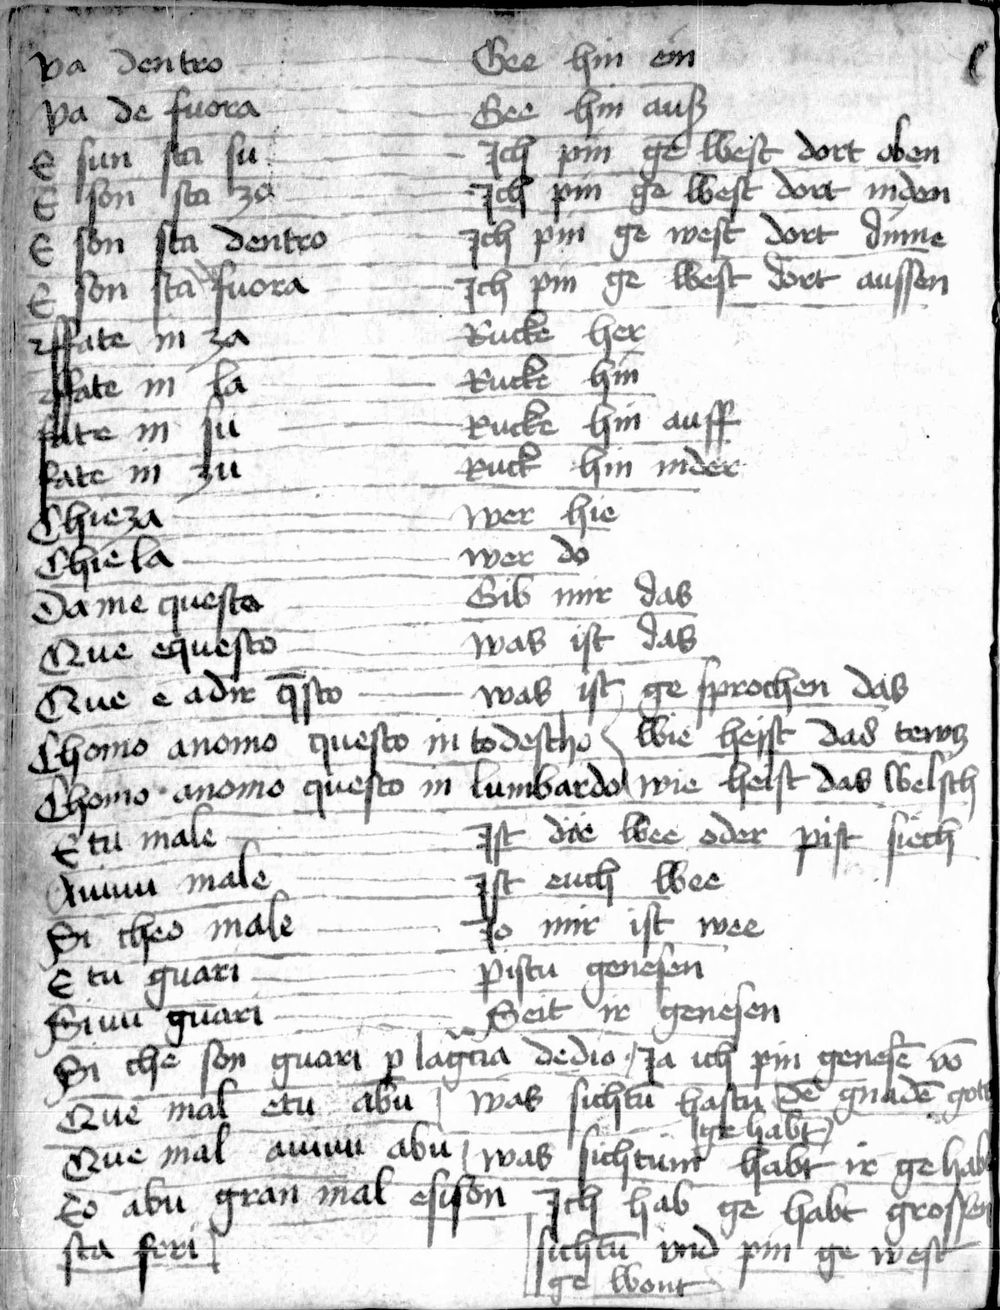 Va dentro Gee hin ein
Va de fuora Gee hin auß
E sun sta su Ich pin ge west dort oben
E son sta zo Ich pin ge west dort niden
E son sta dentro Ich pin ge west dort dinne
E son sta fuora Ich pin ge west dort aussen
ffate in za Rucke her
ffate in la Rucke hin
fate in su Rucke hin auff
fate in zu Ruck hin nider
Chieza wer hie
Chiela wer do
Dame questo Gib mir das
Que equesto was ist das
Que e adir q̄sto was ist ge sprochen das
Chomo anomo questo in todescho wie heist das tewcz
Chomo anomo questo in lumbardo wie heist das welsch
E tu male Ist die wee oder pist siech
Auuu male Ist euch wee
Si cheo male Jo mir ist wee
E tu guari Pistu genesen
Siuu guari Seit ir genesen
Si che son guari p lagr̄cia dedio Ja ich pin genesē vō
Que mal etu abu was sichtū hastu dē gnadē gott
ge habt
Que mal auuu abu was sichtum habt ir ge habt
Eo abu gran mal esison Ich hab ge habt grossen
sta feri sichtū vnd pin ge west
ge wont